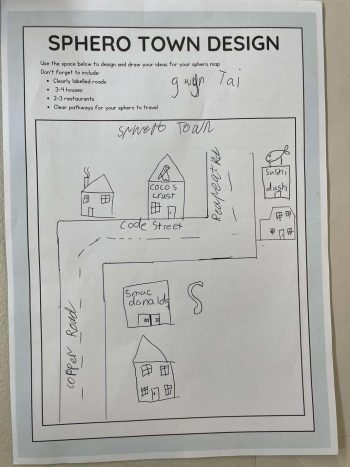 SPHERO TOWN DESIGN
Use the space below to design and draw your ideas for your sphero map
Don't forget to include:
• Clearly labelled roads
• 3-4 houses
• 2-3 restaurants
• Clear pathways for your sphero to travel
Tai
SPHERO TOWN
coco's
crust
sushi
dushi
Code Street
5mac
donalds
S
copper Road